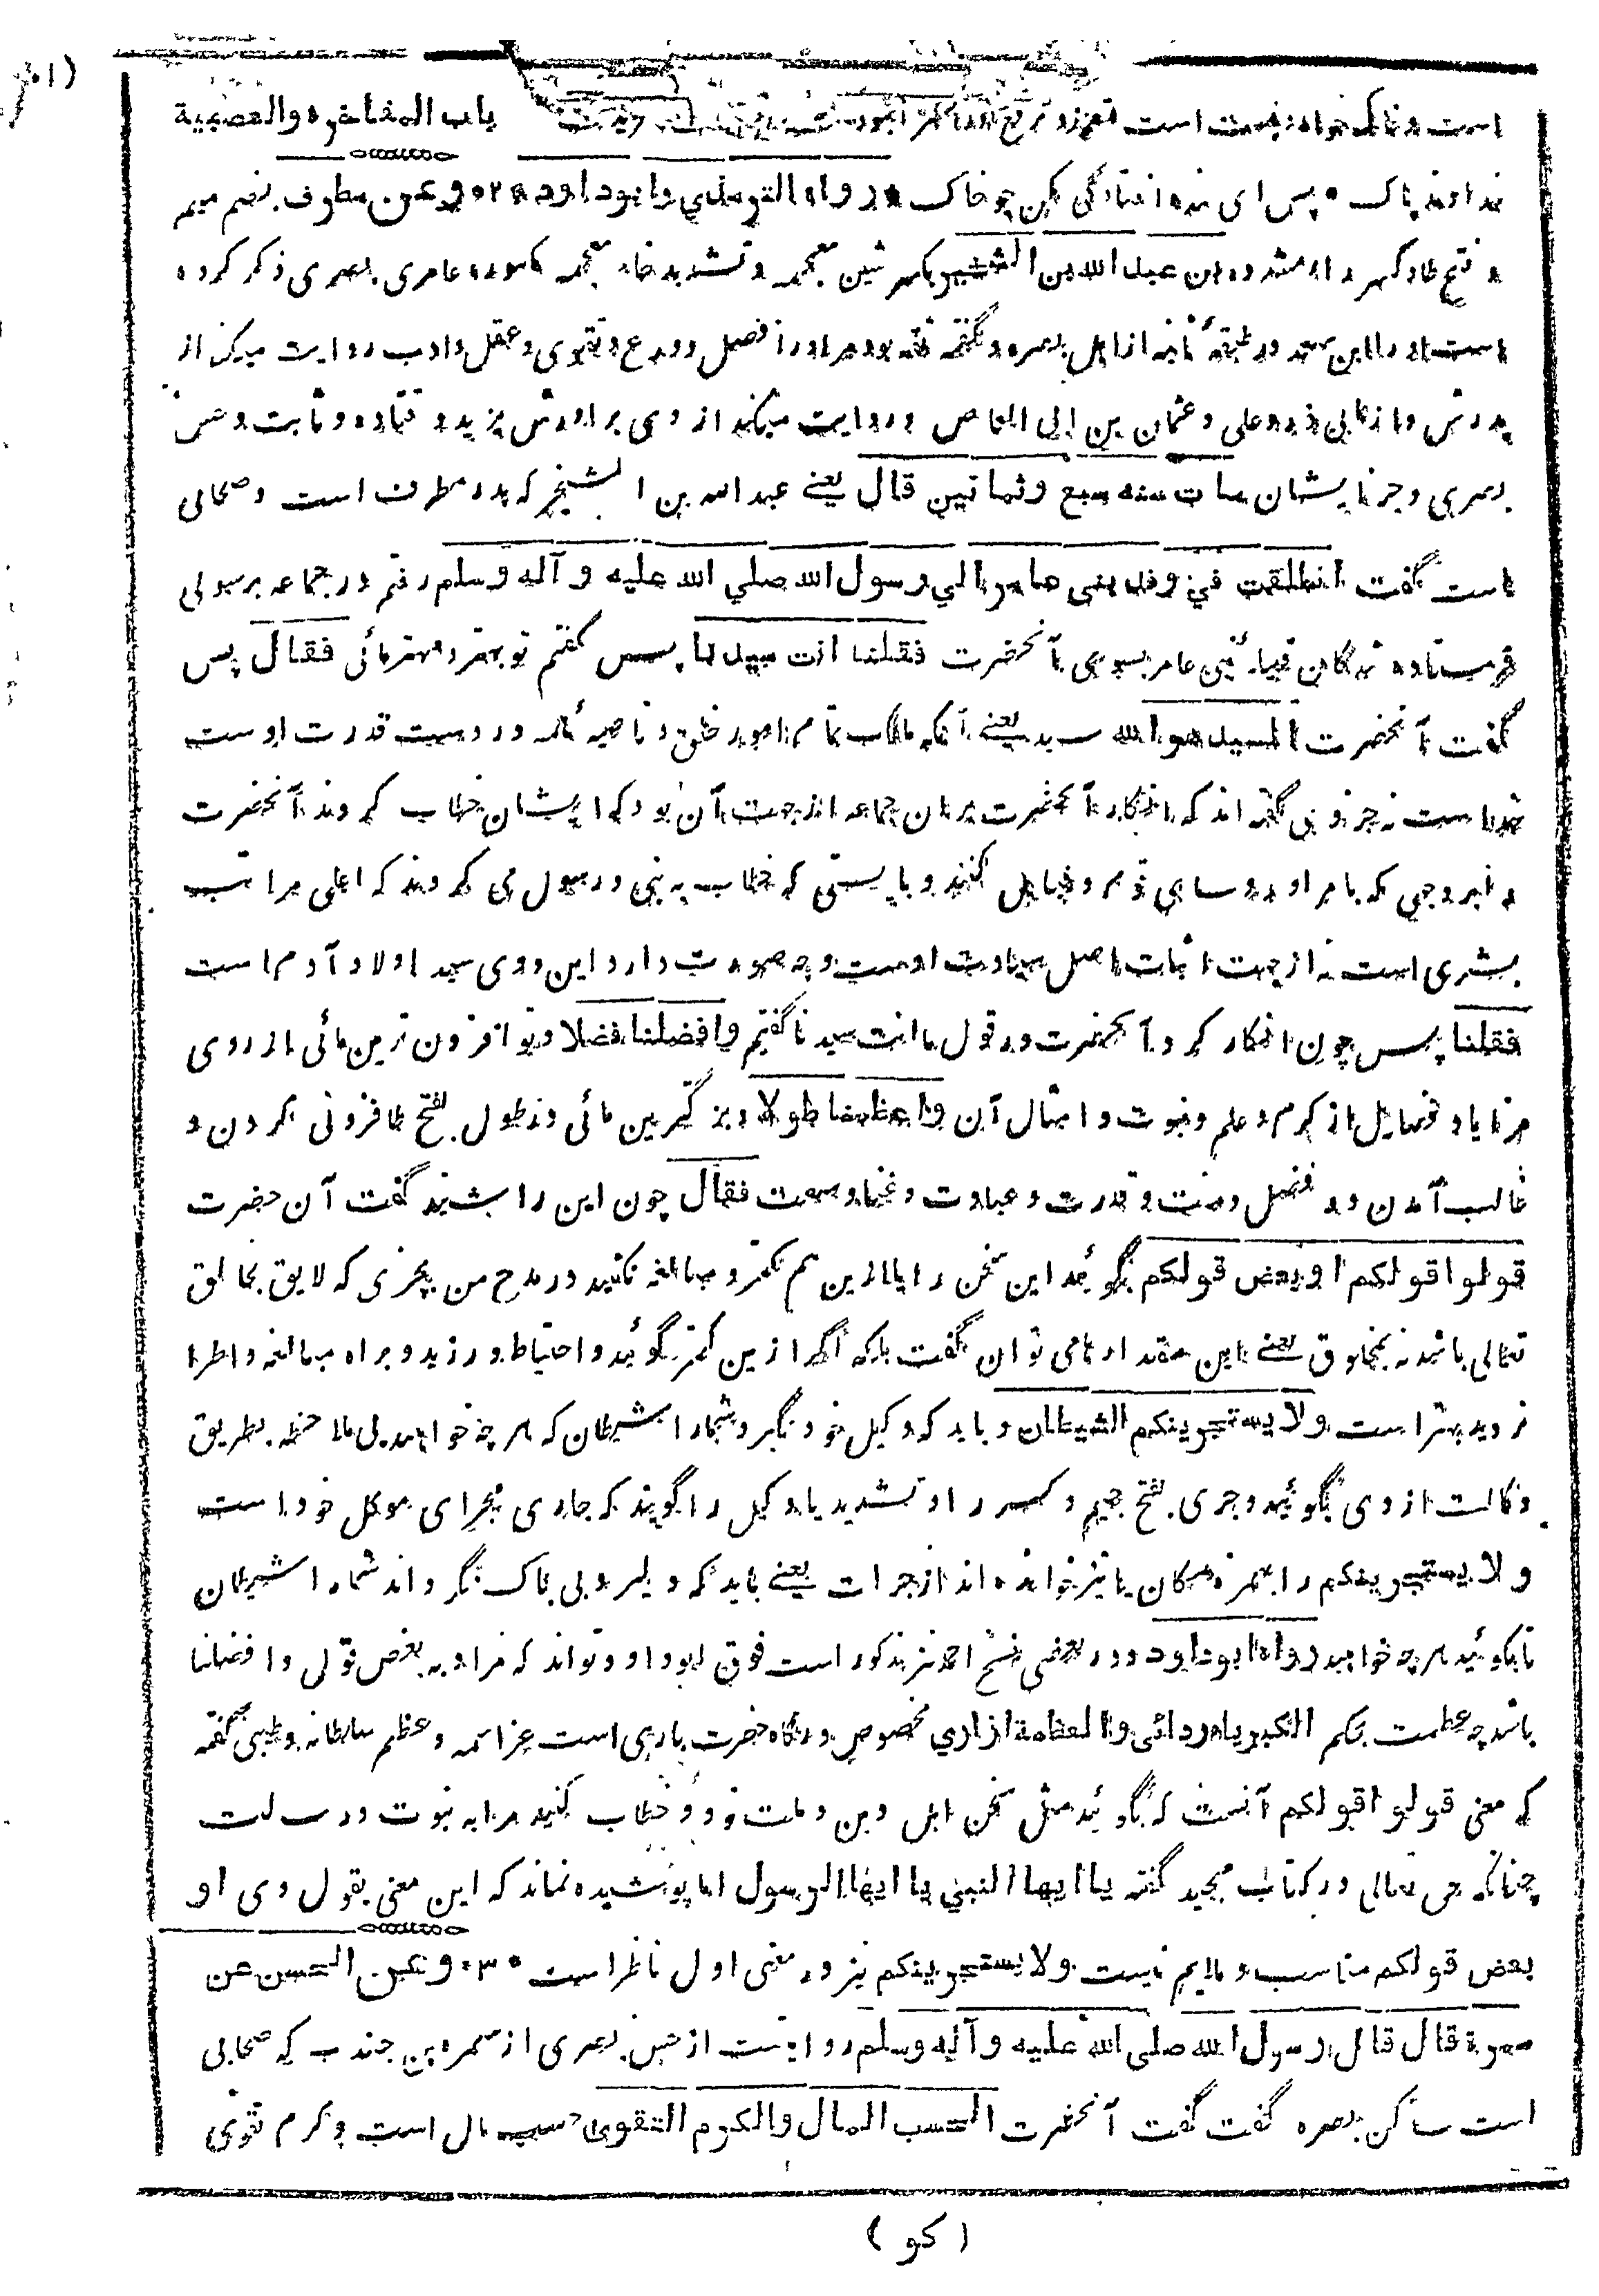 باب المفاخرة والعصبية
است و خاک خوار و پست است تعزز و ترفع
خداوند پاک * پس ای بنده افتادگی کن چو خاک * رواه الترمذي وابوداود * ۲۹ * وعن مطرف بضم میم
و فتح طا و کسر راء مشدده بن عبد الله بن الشخیر بکسر شین معجمه و تشدید خاء معجمه مکسوره عامری بصری ذکر کرده
است او را ابن سعد در طبقهٔ ثانیه از اهل بصره و گفته ثقه بود مر او را فضل و ورع و تقوی و عقل و ادب روایت میکند از
پدرش و از ابی ذر و علی و عثمان بن ابی العاص و روایت میکند از وی برادرش یزید و قتاده و ثابت و حسن
بصری و جز ایشان مات سنه سبع وثمانین قال یعنے عبد الله بن الشخیر که پدر مطرف است و صحابی
است گفت انطلقت في وفد بني عامر الي رسول الله صلي الله عليه و آله وسلم رفتم در جماعه رسولی
فرستاده شدگان قبیلهٔ بنی عامر بسوی آنحضرت فقلنا انت سيدنا پس گفتم تو بهتر و مهتر مائی فقال پس
گفت آنحضرت السيد هو الله سید یعنے آنکه مالک تمام امور خلق و ناصیهٔ همه در دست قدرت اوست
خداست نه جز وی گفته اند که انکار آنحضرت بر آن جماعه از جهت آن بود که ایشان خطاب کردند آنحضرت
را بر وجهی که با مرا و روسای قوم و قبایل کنند و بایستی که خطاب به نبی و رسول می کردند که اعلی مراتب
بشری است نه از جهت اثبات اصل سیادت اوست و چه صورت دارد این و وی سید اولاد آدم است
فقلنا پس چون انکار کرد آنحضرت در قول ما انت سیدنا گفتیم وافضلنا فضلا و تو افزون ترین مائی از روی
مزایا و فضایل از کرم و علم و نبوت و امثال آن واعظمنا طولا و بزرگترین مائی در طول بفتح طا فزونی کردن و
غالب آمدن در فضل و منت و قدرت و عبادت و غنا و سعت فقال چون این را شنید گفت آن حضرت
قولوا قولكم او بعض قولكم بگوئید این سخن را یا ازین هم کمتر و مبالغه نکنید در مدح من بچیزی که لایق بخالق
تعالی باشد نه بمخلوق یعنے این مقدار نامی توان گفت بلکه اگر ازین کمتر گوئید و احتیاط ورزید و براه مبالغه و اطرا
نروید بهتر است ولا يستجرينكم الشيطان و باید که وکیل خود نگیرد شما را شیطان که هر چه خواهد بی ملاحظه بطریق
وکالت از وی بگوئید و جری بفتح جیم و کسر را و تشدید یا وکیل را گویند که جاری مجرای موکل خود است
و لا يستجرينكم را بهمزه مکان یا نیز خوانده اند از جرات یعنے باید که دلیر و بی باک نگرداند شما را شیطان
تا بگوئید هر چه خواهید رواه ابوداود و در بعضی نسخ احمد نیز مذکور است فوق ابوداود و تواند که مراد به بعض قولی و افضلنا
باشد چه عظمت بحکم الكبرياء ردائي والعظمة ازاري مخصوص درگاه حضرت باری است عز اسمه و عظم سلطانه و طیبی گفته
که معنی قولوا قولكم آنست که بگوئید مثل سخن اهل دین و ملت خود و خطاب کنید مرا به نبوت و رسالت
چنانکه حق تعالی در کتاب مجید گفته يا ايها النبي يا ايها الرسول اما پوشیده نماند که این معنی بقول وی او
بعض قولكم مناسب و ملایم نیست و لا يستجرينكم نیز در معنی اول ناظر است * ۳۰ * وعن الحسن عن
سمرة قال قال رسول الله صلى الله عليه وآله وسلم روایت است از حسن بصری از سمره بن جندب که صحابی
است ساکن بصره گفت گفت آنحضرت الحسب المال والكرم التقوى حسب مال است و کرم تقوی
( کو )